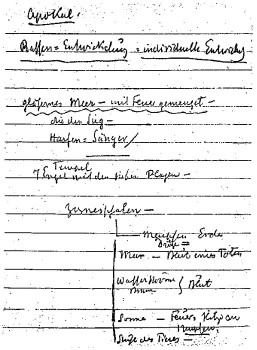 Apokal.
Rassen = Entwickelung = individuelle Entwickl
gläsernes Meer – mit Feuer gemengt –
die den Sieg –
Harfen = Sänger
Tempel
7 Engel mit den sieben Plagen –
Zornesschalen –
Menschen Erde
Drüse
Meer – Blut eines Toten
Wasserströme } Blut
Sonne – Feuer
Menschen